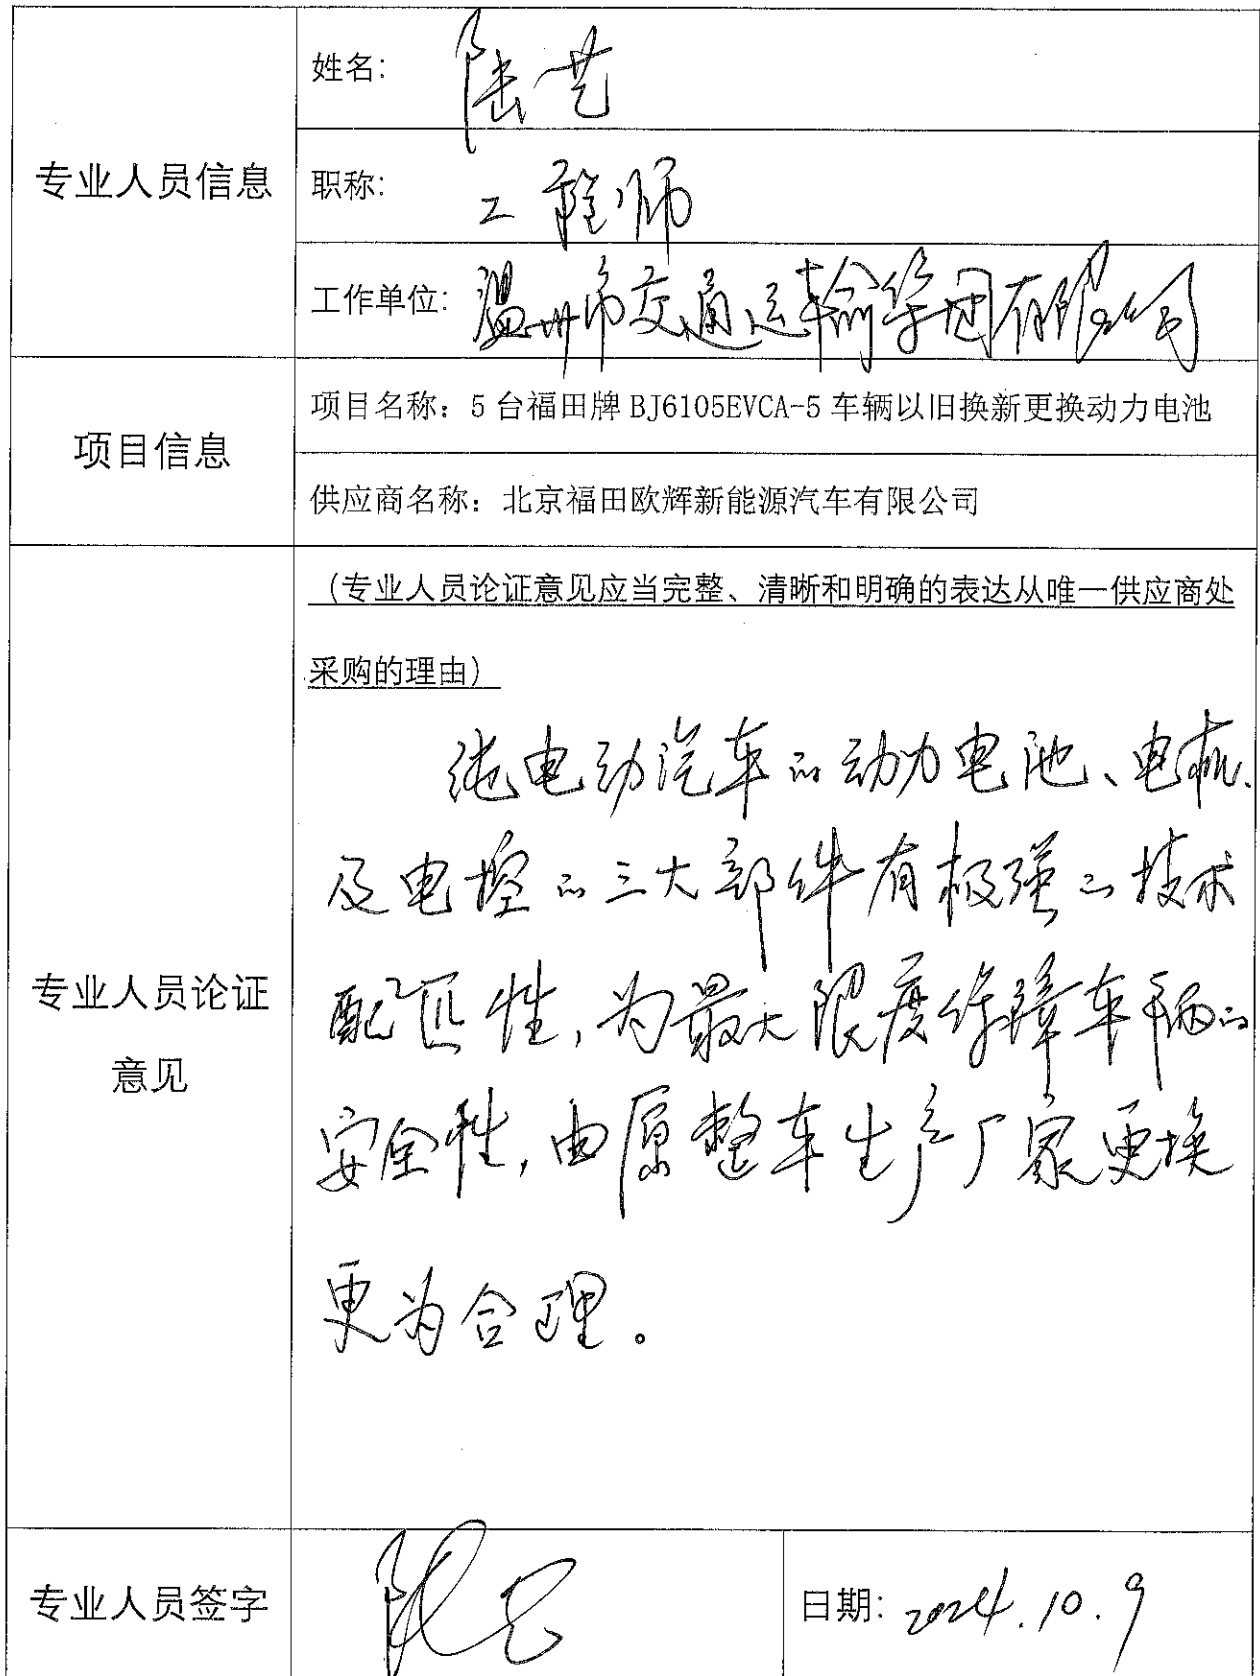 专业人员信息
姓名: 陆艺
职称: 工程师
工作单位: 温州市交通运输集团有限公司
项目信息
项目名称: 5台福田牌 BJ6105EVCA-5 车辆以旧换新更换动力电池
供应商名称: 北京福田欧辉新能源汽车有限公司
专业人员论证
意见
（专业人员论证意见应当完整、清晰和明确的表达从唯一供应商处
采购的理由）
纯电动汽车的动力电池、电机、
及电控的三大部件有极强的技术
配匹性,为最大限度保障车辆的
安全性,由原整车生产厂家更换
更为合理。
专业人员签字
陆艺
日期: 2024.10.9